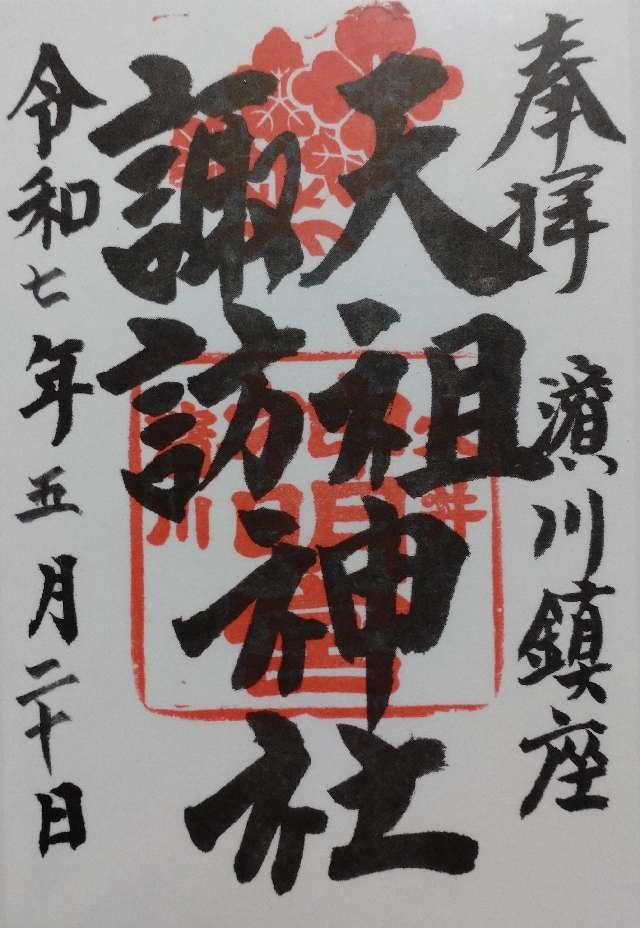 奉拝
濵川鎮座
天祖
諏訪
神社
令和七年五月二十日